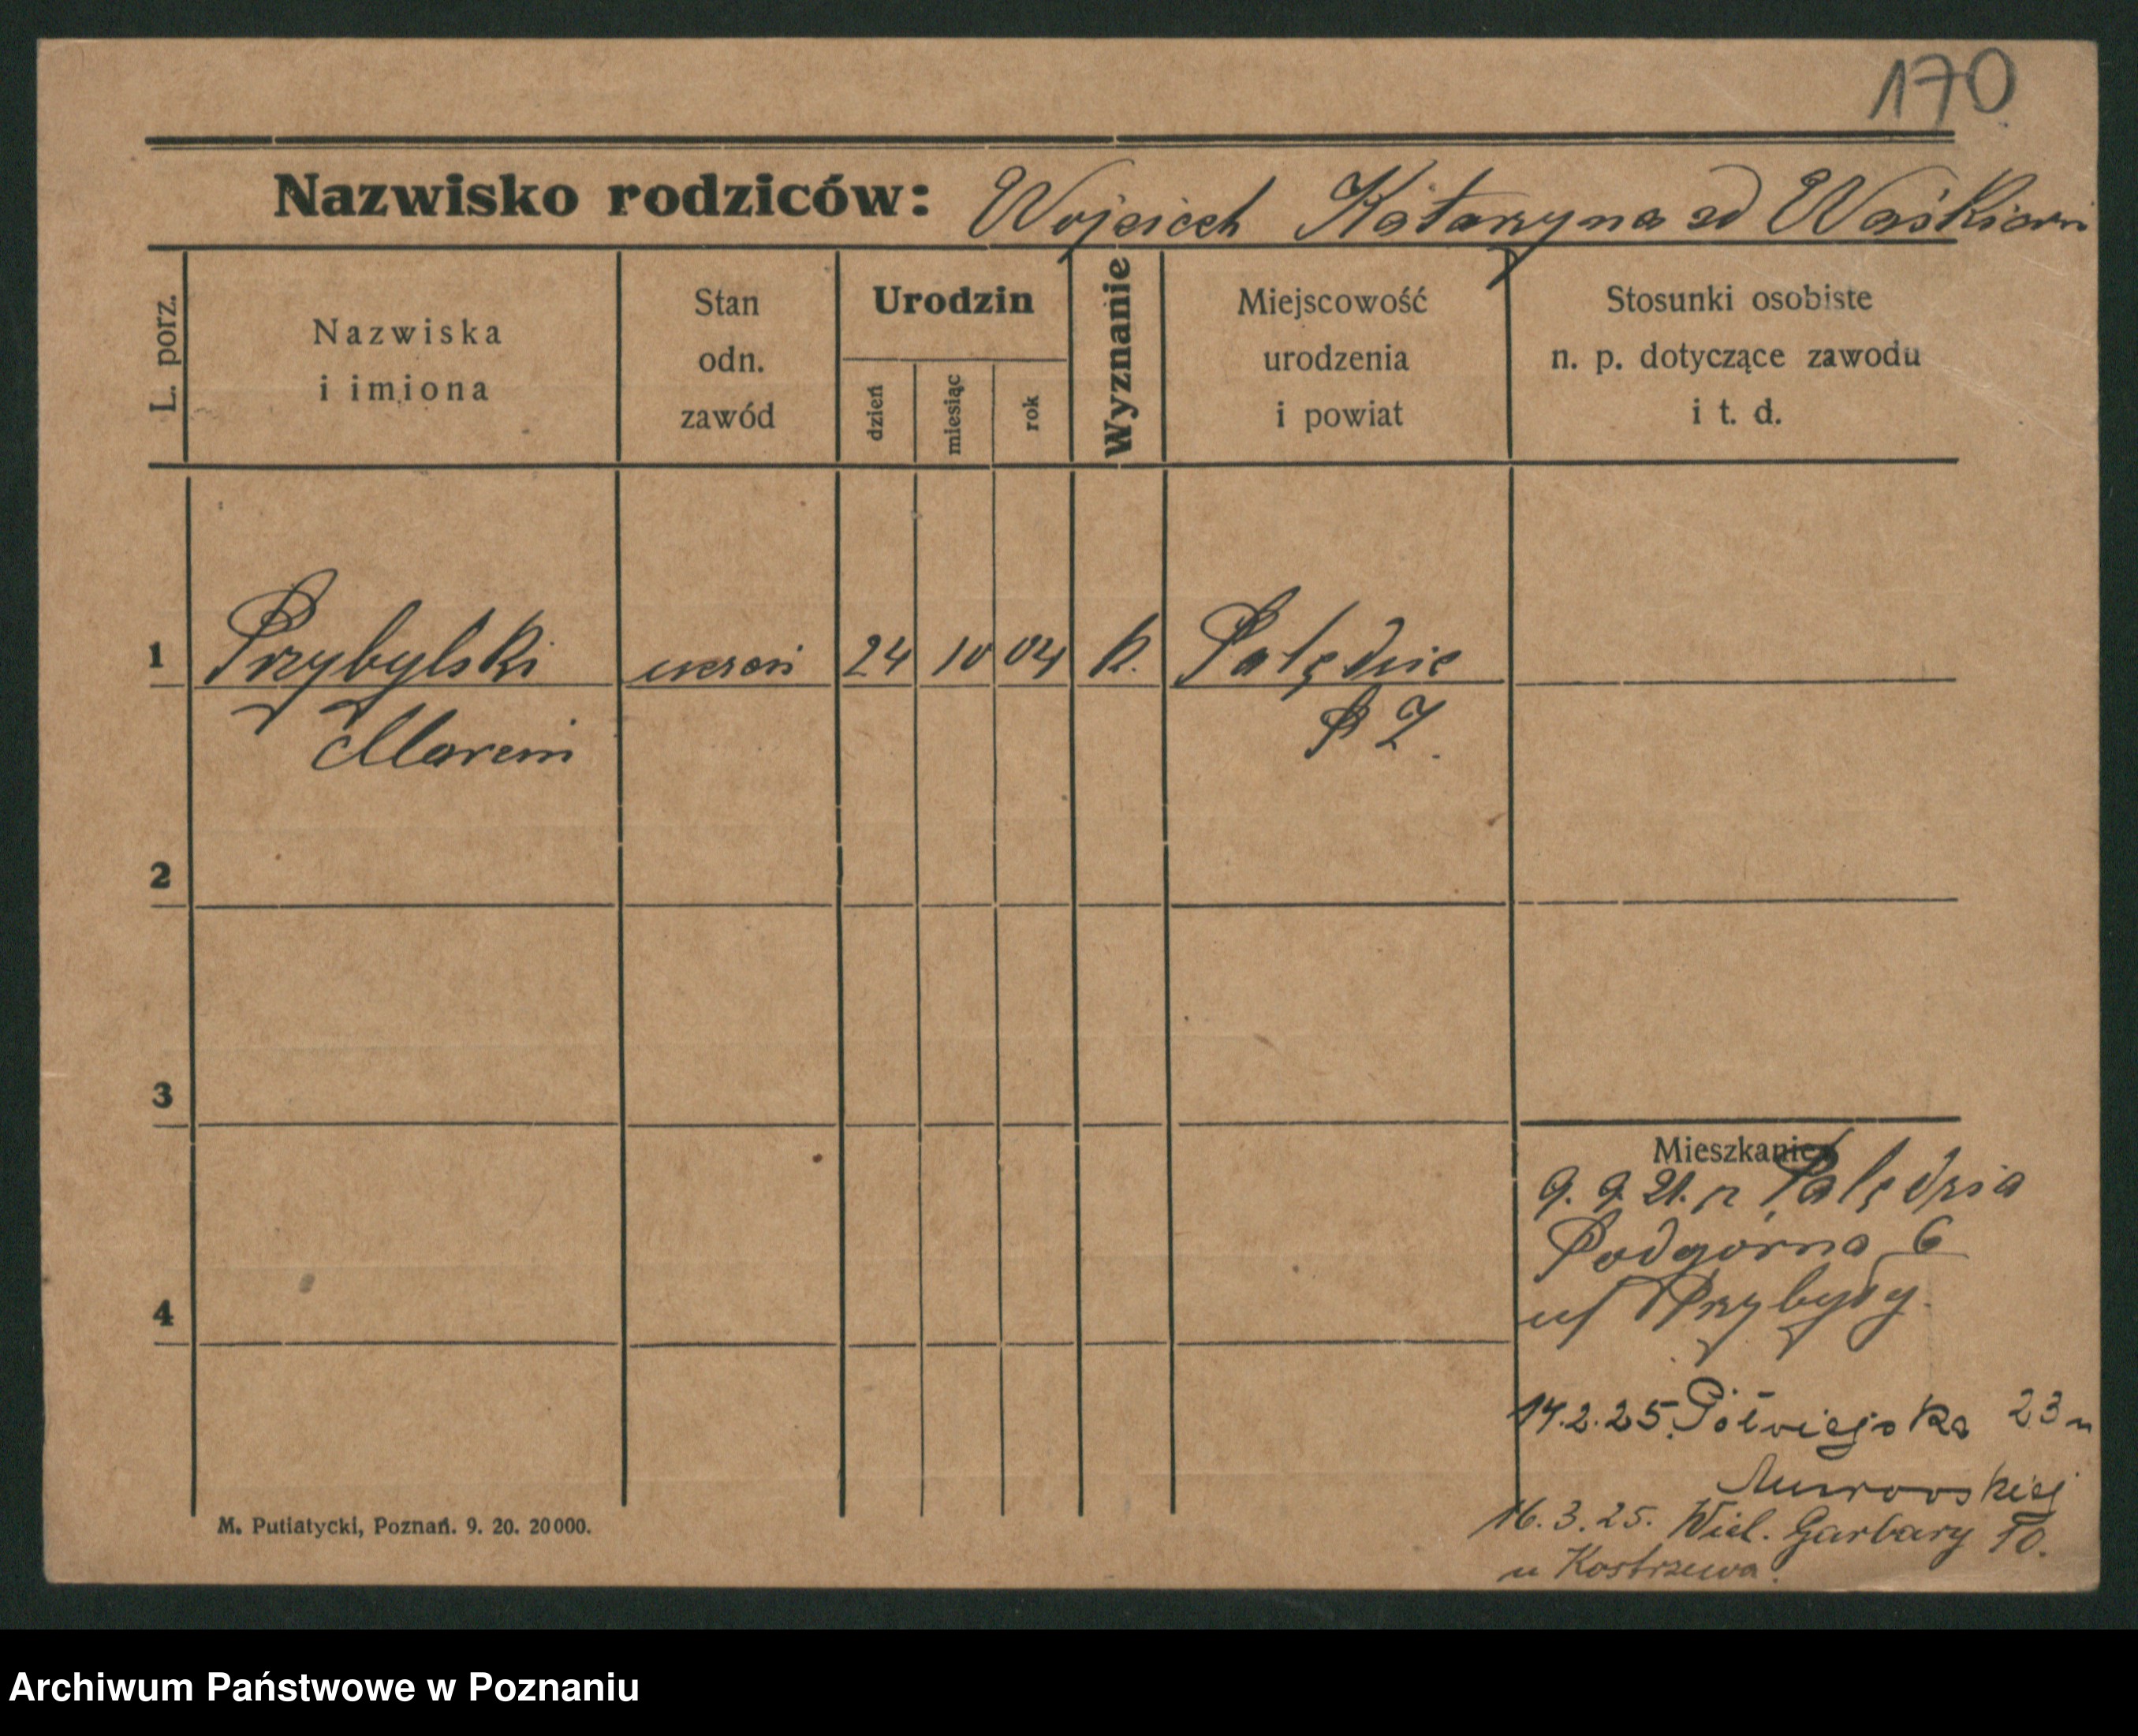 170
Nazwisko rodziców: Wojciech Katarzyna zd Waśkiewi
L. porz.
Nazwiska
i imiona
Stan
odn.
zawód
Urodzin
dzień
miesiąc
rok
Wyznanie
Miejscowość
urodzenia
i powiat
Stosunki osobiste
n. p. dotyczące zawodu
i t. d.
1 Przybylski uczeń 24 10 04 k. Palędzie
Marcin P Z.
2
3
Mieszkanie
9. 9. 21. z Palędzia
Podgórna 6
u/ Przybyły.
4
14.2.25. Półwiejska 23 u
16.3.25. Wiel. Garbary 50.
u Kostrzewa.
M. Putiatycki, Poznań. 9. 20. 20000.
Archiwum Państwowe w Poznaniu